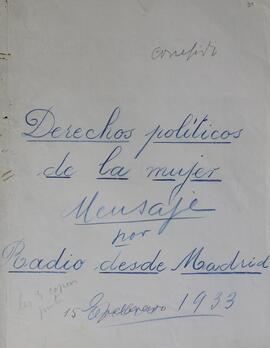 corregido
Derechos políticos
de la mujer
Mensaje
por
Radio desde Madrid
15 1933